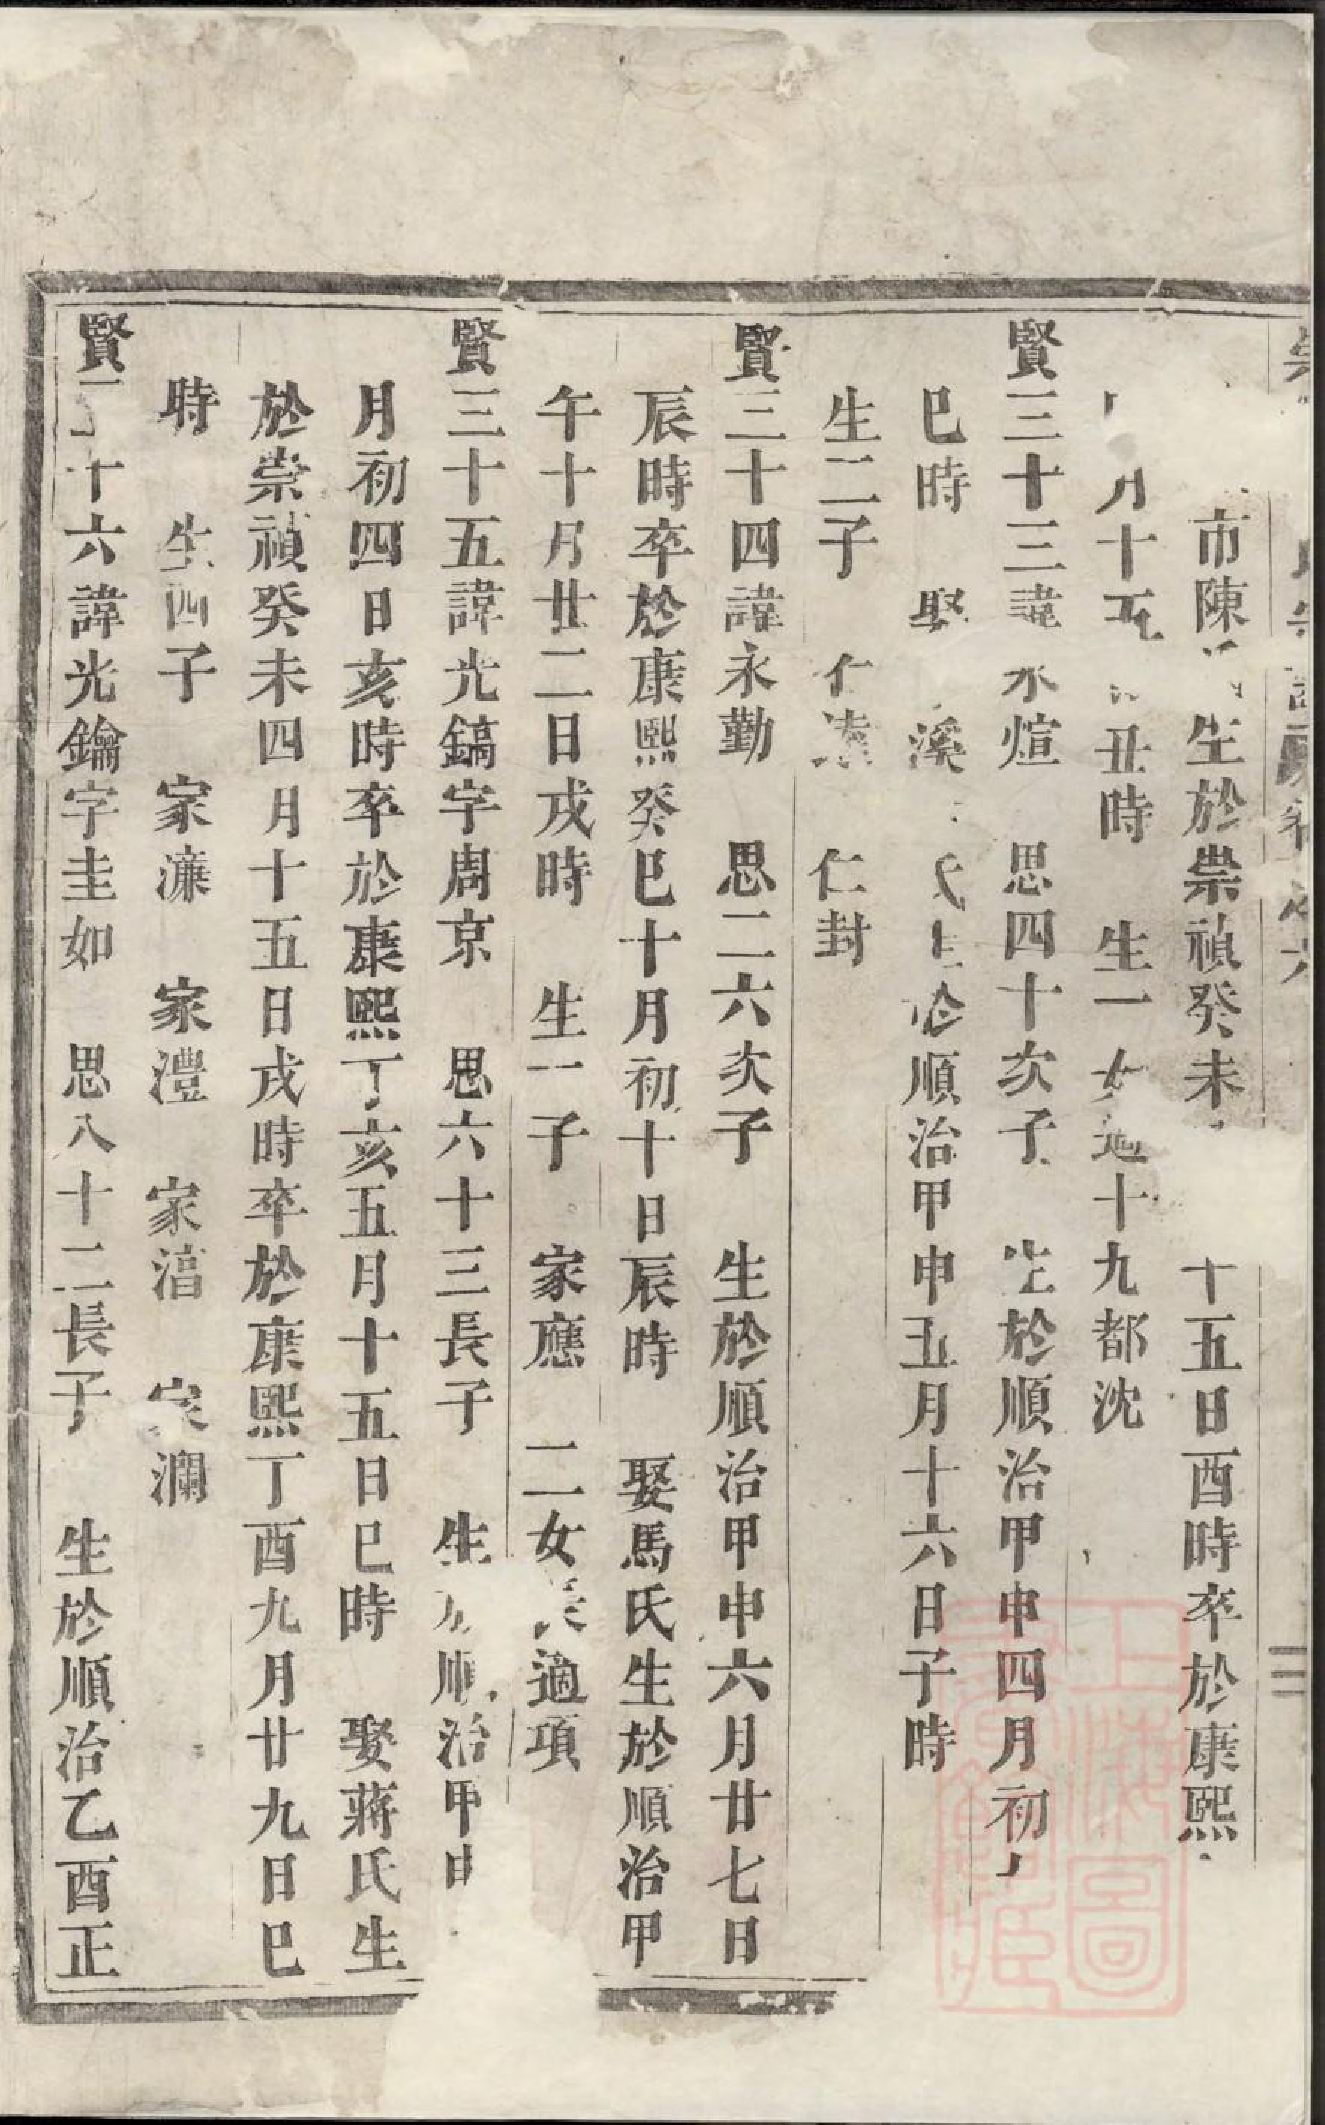 市陳 生於崇禎癸未 十五日酉時卒於康熙
月十五 丑時 生一女適十九都沈
賢三十三諱永煊 思四十次子 生於順治甲申四月初
巳時 娶 溪 氏生於順治甲申五月十六日子時
生二子 仁 仁封
賢三十四諱永勤 思二六次子 生於順治甲申六月廿七日
辰時卒於康熙癸巳十月初十日辰時 娶馬氏生於順治甲
午十月廿二日戌時 生一子 家應 二女長適項
賢三十五諱光鎬字周京 思六十三長子 生於順治甲申
月初四日亥時卒於康熙丁亥五月十五日巳時 娶蔣氏生
於崇禎癸未四月十五日戌時卒於康熙丁酉九月廿九日巳
時 生四子 家濂 家灃 家湻 家瀾
賢三十六諱光鑰字圭如 思八十二長子 生於順治乙酉正
上海圖書館藏